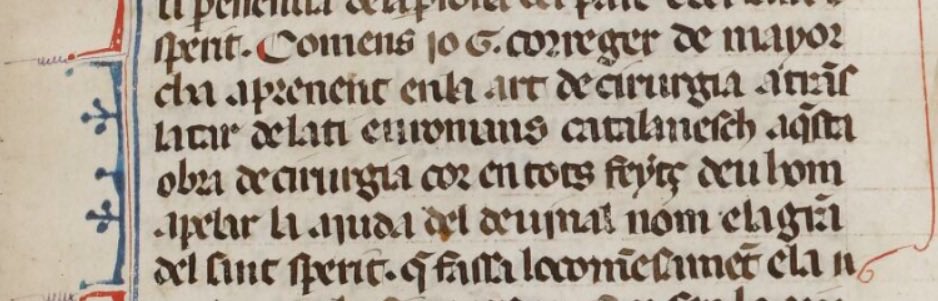 sperit. Comens io G. correger de mayor
cha aprenent enla art de cirurgia a trãs
latar de lati en romans catalanesch aq̃sta
obra de cirurgia cor en tots feytz deu hom
apelar la aiuda del deuinal nom e la grã
del sant sperit. q̃ fassa lo comẽsamẽt e la u